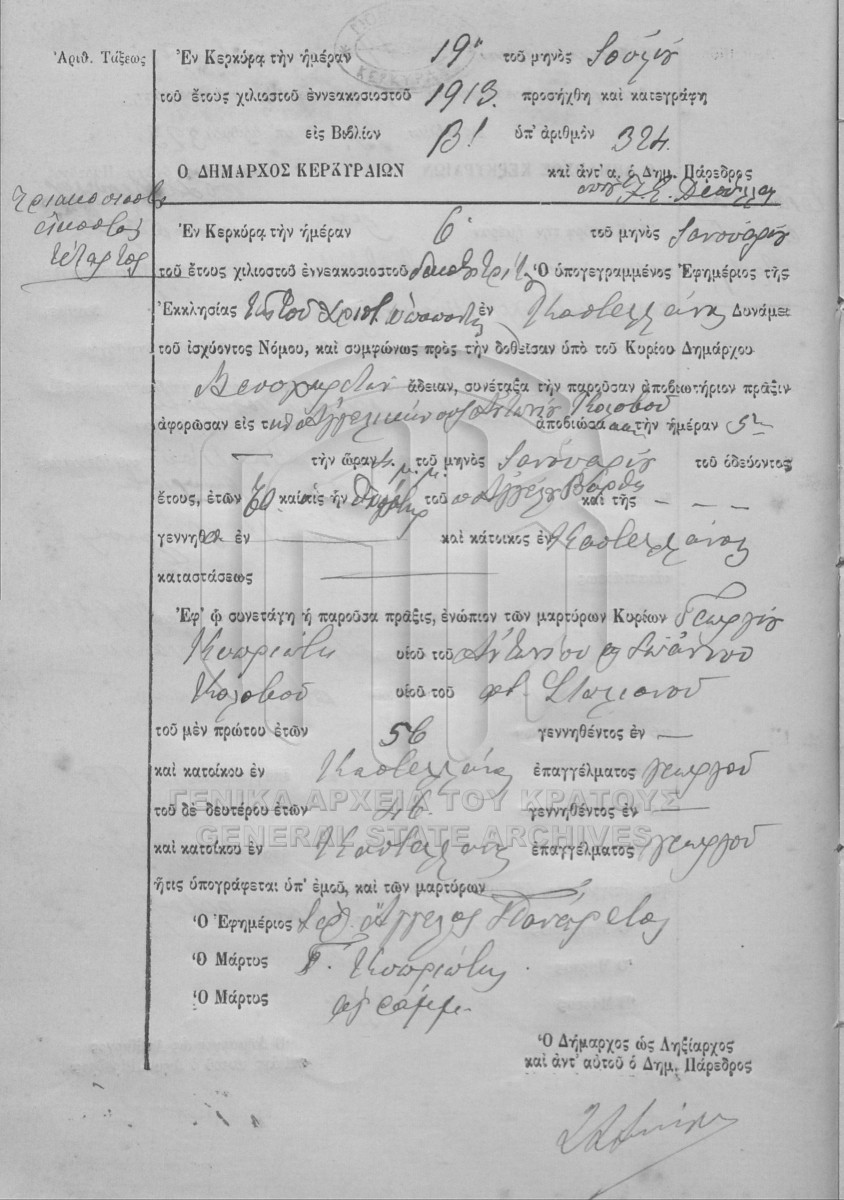 Ἀριθ. Τάξεως
Ἐν Κερκύρᾳ τὴν ἡμέραν 19 τοῦ μηνὸς
τοῦ ἔτους χιλιοστοῦ ἐννεακοσιοστοῦ 1913. προσήχθη καὶ κατεγράφη
εἰς Βιβλίον Β! ὑπ' ἀριθμὸν 324.
Ο ΔΗΜΑΡΧΟΣ ΚΕΡΚΥΡΑΙΩΝ καὶ ἀντ' α. ὁ Δημ. Πάρεδρος
τριακοσιοστὸς
εἰκοστὸς
τέταρτος
Ἐν Κερκύρᾳ τὴν ἡμέραν 6 τοῦ μηνὸς Ἰανουαρίου
τοῦ ἔτους χιλιοστοῦ ἐννεακοσιοστοῦ δεκάτου τρίτου Ὁ ὑπογεγραμμένος Ἐφημέριος τῆς
Ἐκκλησίας ἐν Καστελλάνους Δυνάμει
τοῦ ἰσχύοντος Νόμου, καὶ συμφώνως πρὸς τὴν δοθεῖσαν ὑπὸ τοῦ Κυρίου Δημάρχου
ἄδειαν, συνέταξα τὴν παροῦσαν ἀποβιωτήριον πρᾶξιν
ἀφορῶσαν εἰς Ἀγγελικὴν Ἀντωνίου Κολοβοῦ ἀποβιώσασαν τὴν ἡμέραν 5
τὴν ὥραν 4 μ.μ. τοῦ μηνὸς Ἰανουαρίου τοῦ ὁδεύοντος
ἔτους, ἐτῶν καὶ ἥτις ἦν θυγάτηρ τοῦ ποτὲ Ἀγγέλου Βάρθη καὶ τῆς — — —
γεννηθεῖσα ἐν — καὶ κάτοικος ἐν Καστελλάνους
καταστάσεως —
Ἐφ' ᾧ συνετάγη ἡ παροῦσα πρᾶξις, ἐνώπιον τῶν μαρτύρων Κυρίων Γεωργίου
Κυπριώτη υἱοῦ τοῦ Ἀντωνίου καὶ Ἰωάννου
Κολοβοῦ υἱοῦ τοῦ ποτ. Στυλιανοῦ
τοῦ μὲν πρώτου ἐτῶν 56 γεννηθέντος ἐν —
καὶ κατοίκου ἐν Καστελλάνους ἐπαγγέλματος γεωργοῦ
ΓΕΝΙΚΑ ΑΡΧΕΙΑ ΤΟΥ ΚΡΑΤΟΥΣ
τοῦ δὲ δευτέρου ἐτῶν 46 γεννηθέντος ἐν —
GENERAL STATE ARCHIVES
καὶ κατοίκου ἐν Καστελλάνους ἐπαγγέλματος γεωργοῦ
ἥτις ὑπογράφεται ὑπ' ἐμοῦ, καὶ τῶν μαρτύρων
Ὁ Ἐφημέριος Ἱερ. Ἄγγελος Πανάρετος
Ὁ Μάρτυς Γ. Κυπριώτης
Ὁ Μάρτυς ἀγράμμ.
Ὁ Δήμαρχος ὡς Ληξίαρχος
καὶ ἀντ' αὐτοῦ ὁ Δημ. Πάρεδρος